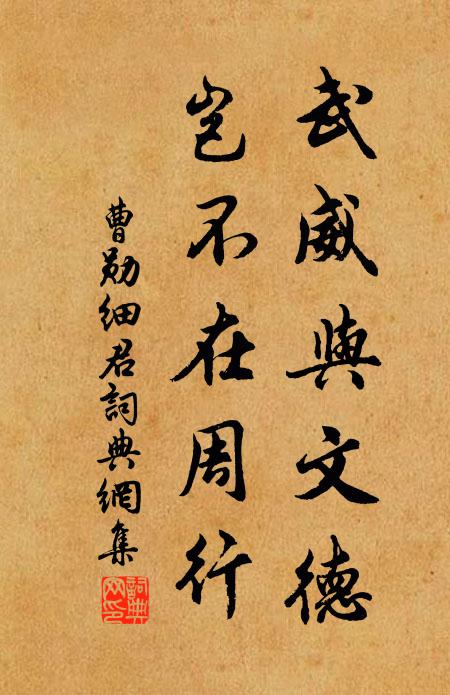 武威與文德
豈不在周行
曹勛細君詞典網集
詞典網印